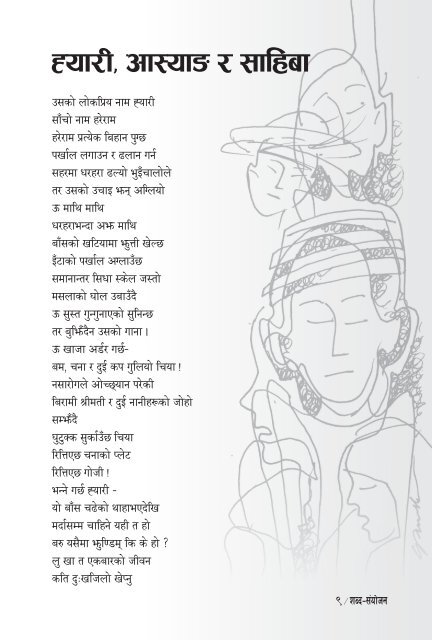 ह्यारी, आस्याङ र साहिबा
उसको लोकप्रिय नाम ह्यारी
साँचो नाम हरेराम
हरेराम प्रत्येक बिहान पुग्छ
पर्खाल लगाउन र ढलान गर्न
सहरमा धरहरा ढल्यो भुइँचालोले
तर उसको उचाइ झन् अग्लियो
ऊ माथि माथि
धरहराभन्दा अझ माथि
बाँसको खटियामा झुत्ती खेल्छ
इँटाको पर्खाल अग्लाउँछ
समानान्तर सिधा स्केल जस्तो
मसलाको घोल उबाउँदै
ऊ सुस्त गुन्गुनाएको सुनिन्छ
तर बुझिँदैन उसको गाना ।
ऊ खाजा अर्डर गर्छ-
बम, चना र दुई कप गुलियो चिया !
नसारोगले ओच्छ्यान परेकी
बिरामी श्रीमती र दुई नानीहरूको जोहो
सम्झँदै
घुटुक्क सुर्काउँछ चिया
रित्तिएछ चनाको प्लेट
रित्तिएछ गोजी !
भन्ने गर्छ ह्यारी -
यो बाँस चढेको थाहाभएदेखि
मर्दासम्म चाहिने यही त हो
बरु यसैमा झुण्डिम् कि के हो ?
लु खा त एकबारको जीवन
कति दुःखजिलो खेप्नु
९ / शब्द-संयोजन